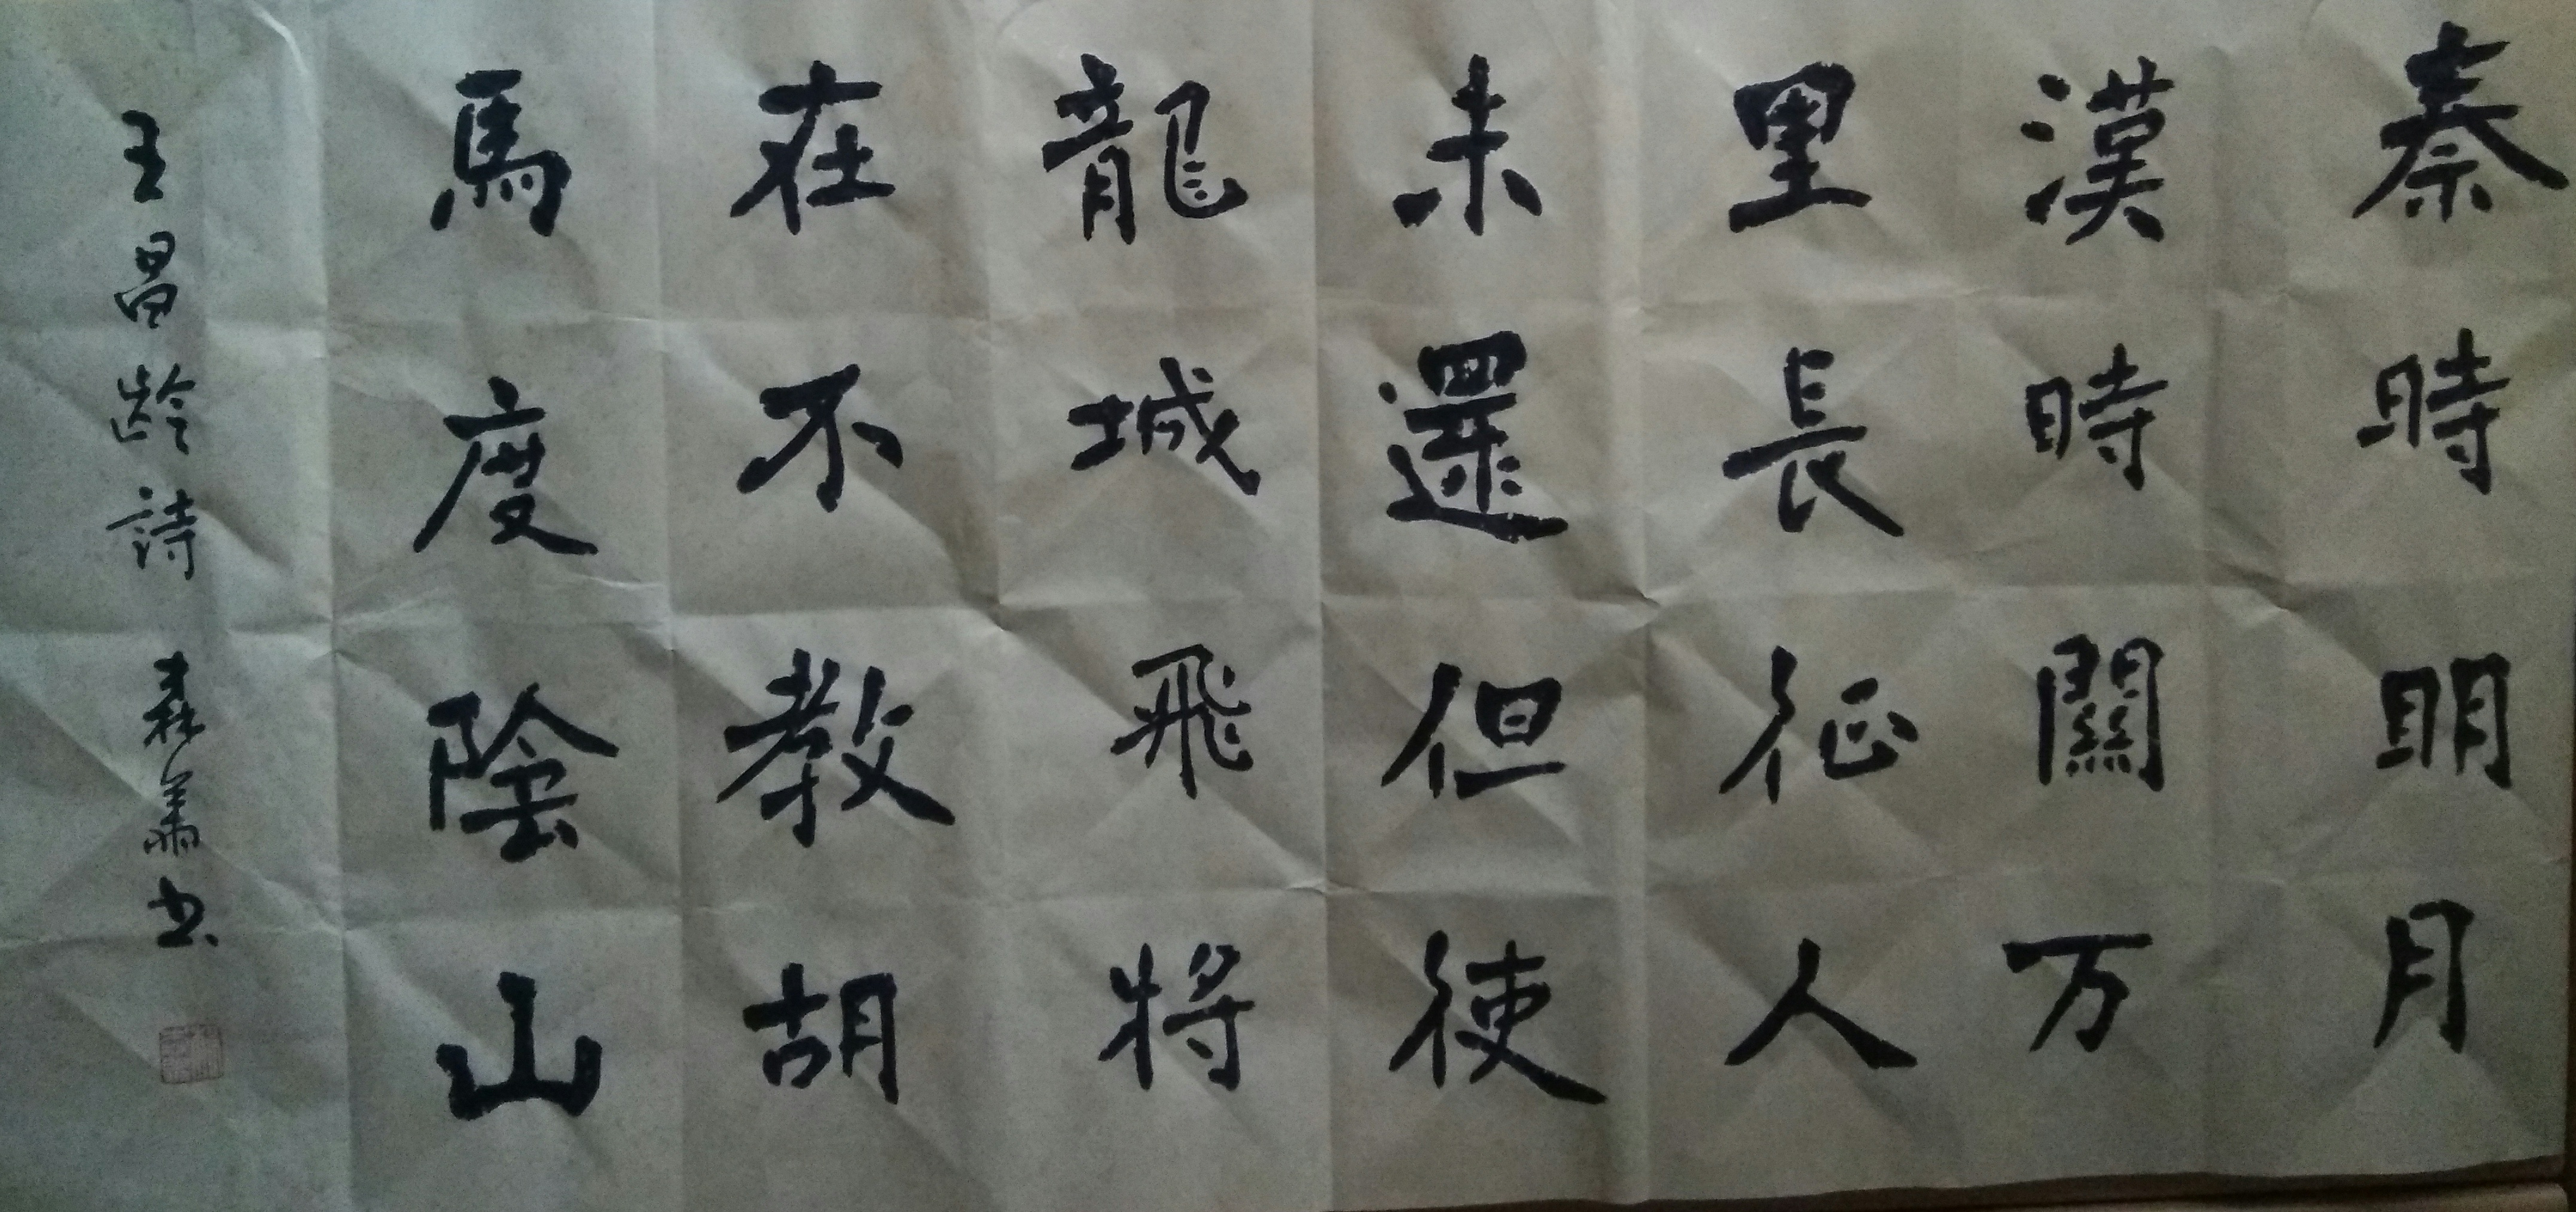 秦時明月
漢時關万
里長征人
未還但使
龍城飛將
在不教胡
馬度陰山
王昌龄詩 森 书